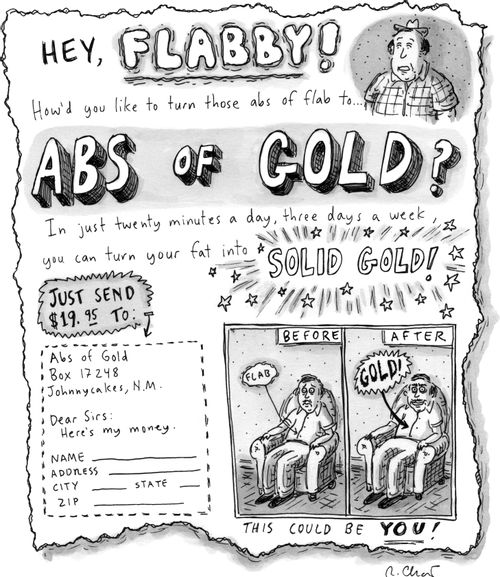 HEY, FLABBY!
How'd you like to turn those abs of flab to...
ABS OF GOLD?
In just twenty minutes a day, three days a week,
you can turn your fat into
SOLID GOLD!
JUST SEND
$19.95 TO:
Abs of Gold
Box 17248
Johnnycakes, N.M.
Dear Sirs:
Here's my money.
NAME
ADDRESS
CITY STATE
ZIP
BEFORE
FLAB
AFTER
GOLD!
THIS COULD BE YOU!
R. Chast